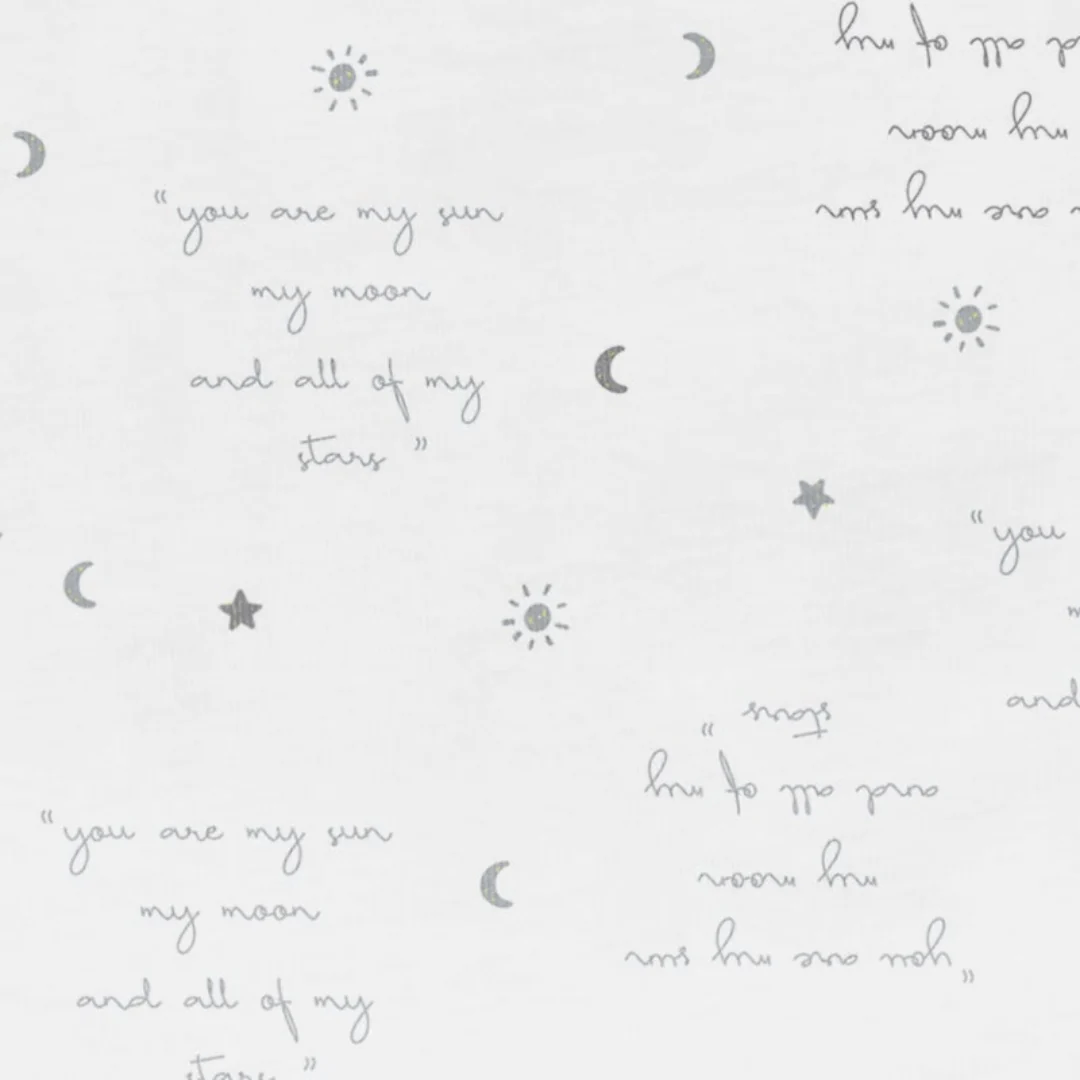 “you are my sun
my moon
and all of my
stars”
and all of my
my moon
are my sun
“you
and
“you are my sun
my moon
and all of my
stars”
“you are my sun
my moon
and all of my
stars”